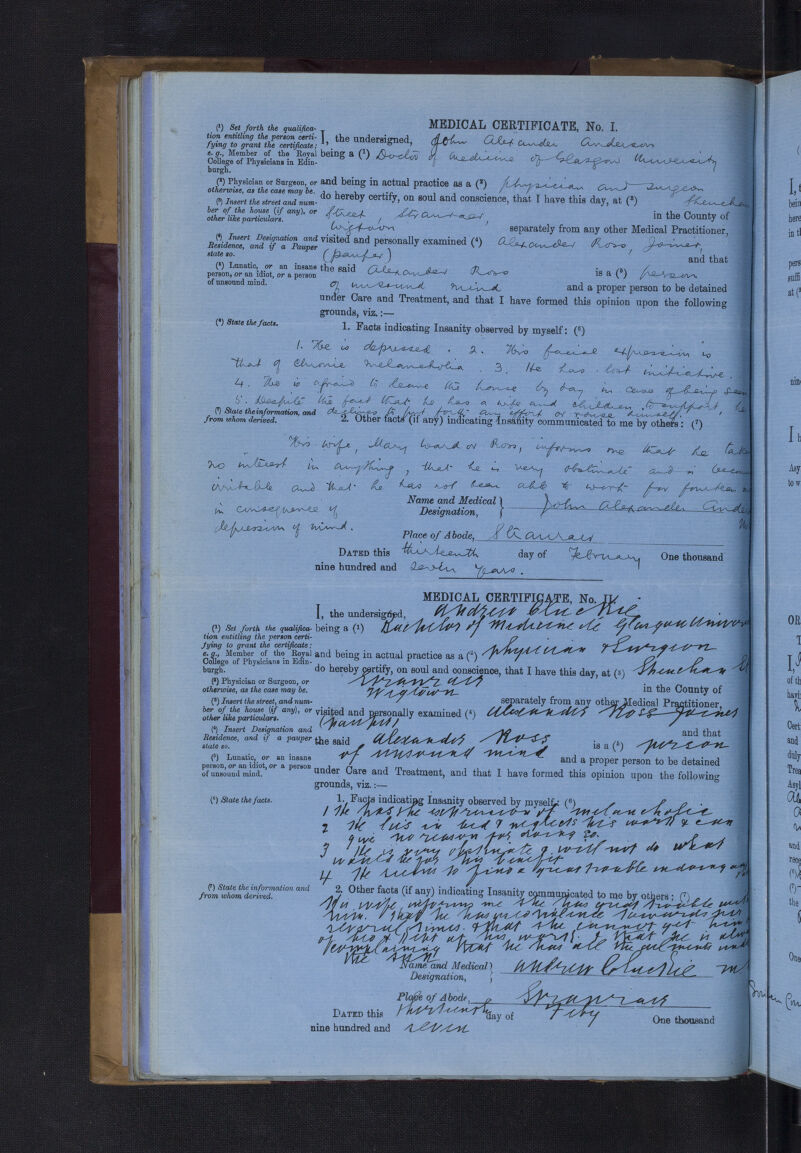 MEDICAL CERTIFICATE, No. I.
(¹) Set forth the qualifica-
tion entitling the person certi-
fying to grant the certificate;
e.g., Member of the Royal
College of Physicians in Edin-
burgh.
I, the undersigned, John Alexander Anderson
being a (¹) Doctor of Medicine of Glasgow University
(²) Physician or Surgeon, or
otherwise, as the case may be.
and being in actual practice as a (²) physician and surgeon
(³) Insert the street and num-
ber of the house (if any), or
other like particulars.
do hereby certify, on soul and conscience, that I have this day, at (³) Sheuchan
Street, Stranraer, in the County of
Wigtown separately from any other Medical Practitioner,
(⁴) Insert Designation and
Residence, and if a Pauper
state so.
visited and personally examined (⁴) Alexander Ross, Joiner,
(pauper) and that
(⁵) Lunatic, or an insane
person, or an idiot, or a person
of unsound mind.
the said Alexander Ross is a (⁵) person
of unsound mind and a proper person to be detained
under Care and Treatment, and that I have formed this opinion upon the following
grounds, viz.:—
(⁶) State the facts.
1. Facts indicating Insanity observed by myself: (⁶)
1. He is depressed. 2. His facial expression is
that of chronic melancholia. 3. He has lost initiative.
4. He is afraid to leave the house by day in case of being seen
5. Despite the fact that he has a wife and children to support, he
declines to put forth any effort or rouse himself.
(⁷) State the information, and
from whom derived.
2. Other facts (if any) indicating Insanity communicated to me by others: (⁷)
His wife, Mary Ward or Ross, informs me that he
no interest in anything, that he is very obstinate and is
irritable and that he has not been able to work for fourteen
in consequence of
depression of mind.
Name and Medical
Designation,
John Alexander
Place of Abode, Stranraer
DATED this thirteenth day of February One thousand
nine hundred and seven years.
MEDICAL CERTIFICATE, No. II.
I, the undersigned, Andrew Cluckie
(¹) Set forth the qualifica-
tion entitling the person certi-
fying to grant the certificate;
e.g., Member of the Royal
College of Physicians in Edin-
burgh.
being a (¹) Bachelor of Medicine Glasgow
and being in actual practice as a (²) Physician & Surgeon
(²) Physician or Surgeon, or
otherwise, as the case may be.
do hereby certify, on soul and conscience, that I have this day, at (³) Sheuchan
Stranraer in the County of
Wigtown separately from any other Medical Practitioner,
(³) Insert the street, and num-
ber of the house (if any), or
other like particulars.
visited and personally examined (⁴) Alexander Ross Joiner
(pauper) and that
(⁴) Insert Designation and
Residence, and if a pauper
state so.
the said Alexander Ross is a (⁵) person
of unsound mind and a proper person to be detained
(⁵) Lunatic, or an insane
person, or an idiot, or a person
of unsound mind.
under Care and Treatment, and that I have formed this opinion upon the following
grounds, viz.:—
(⁶) State the facts.
1. Facts indicating Insanity observed by myself: (⁶)
1 He has the expression of melancholic
2 He lies in bed & neglects his work & can
give no reason for doing so.
3 He is very obstinate & will not do what
would be for his benefit
4 He seems to find a great trouble in doing
(⁷) State the information and
from whom derived.
2. Other facts (if any) indicating Insanity communicated to me by others: (⁷)
His wife informs me she has great trouble with
him. that he has used violence towards her
several times. & that she cannot get him
of bed & at his work. that he is
complaining that he has all the ailments
the sun
Name and Medical
Designation,
Andrew Cluckie
Place of Abode, Stranraer
DATED this thirteenth day of Feby One thousand
nine hundred and seven